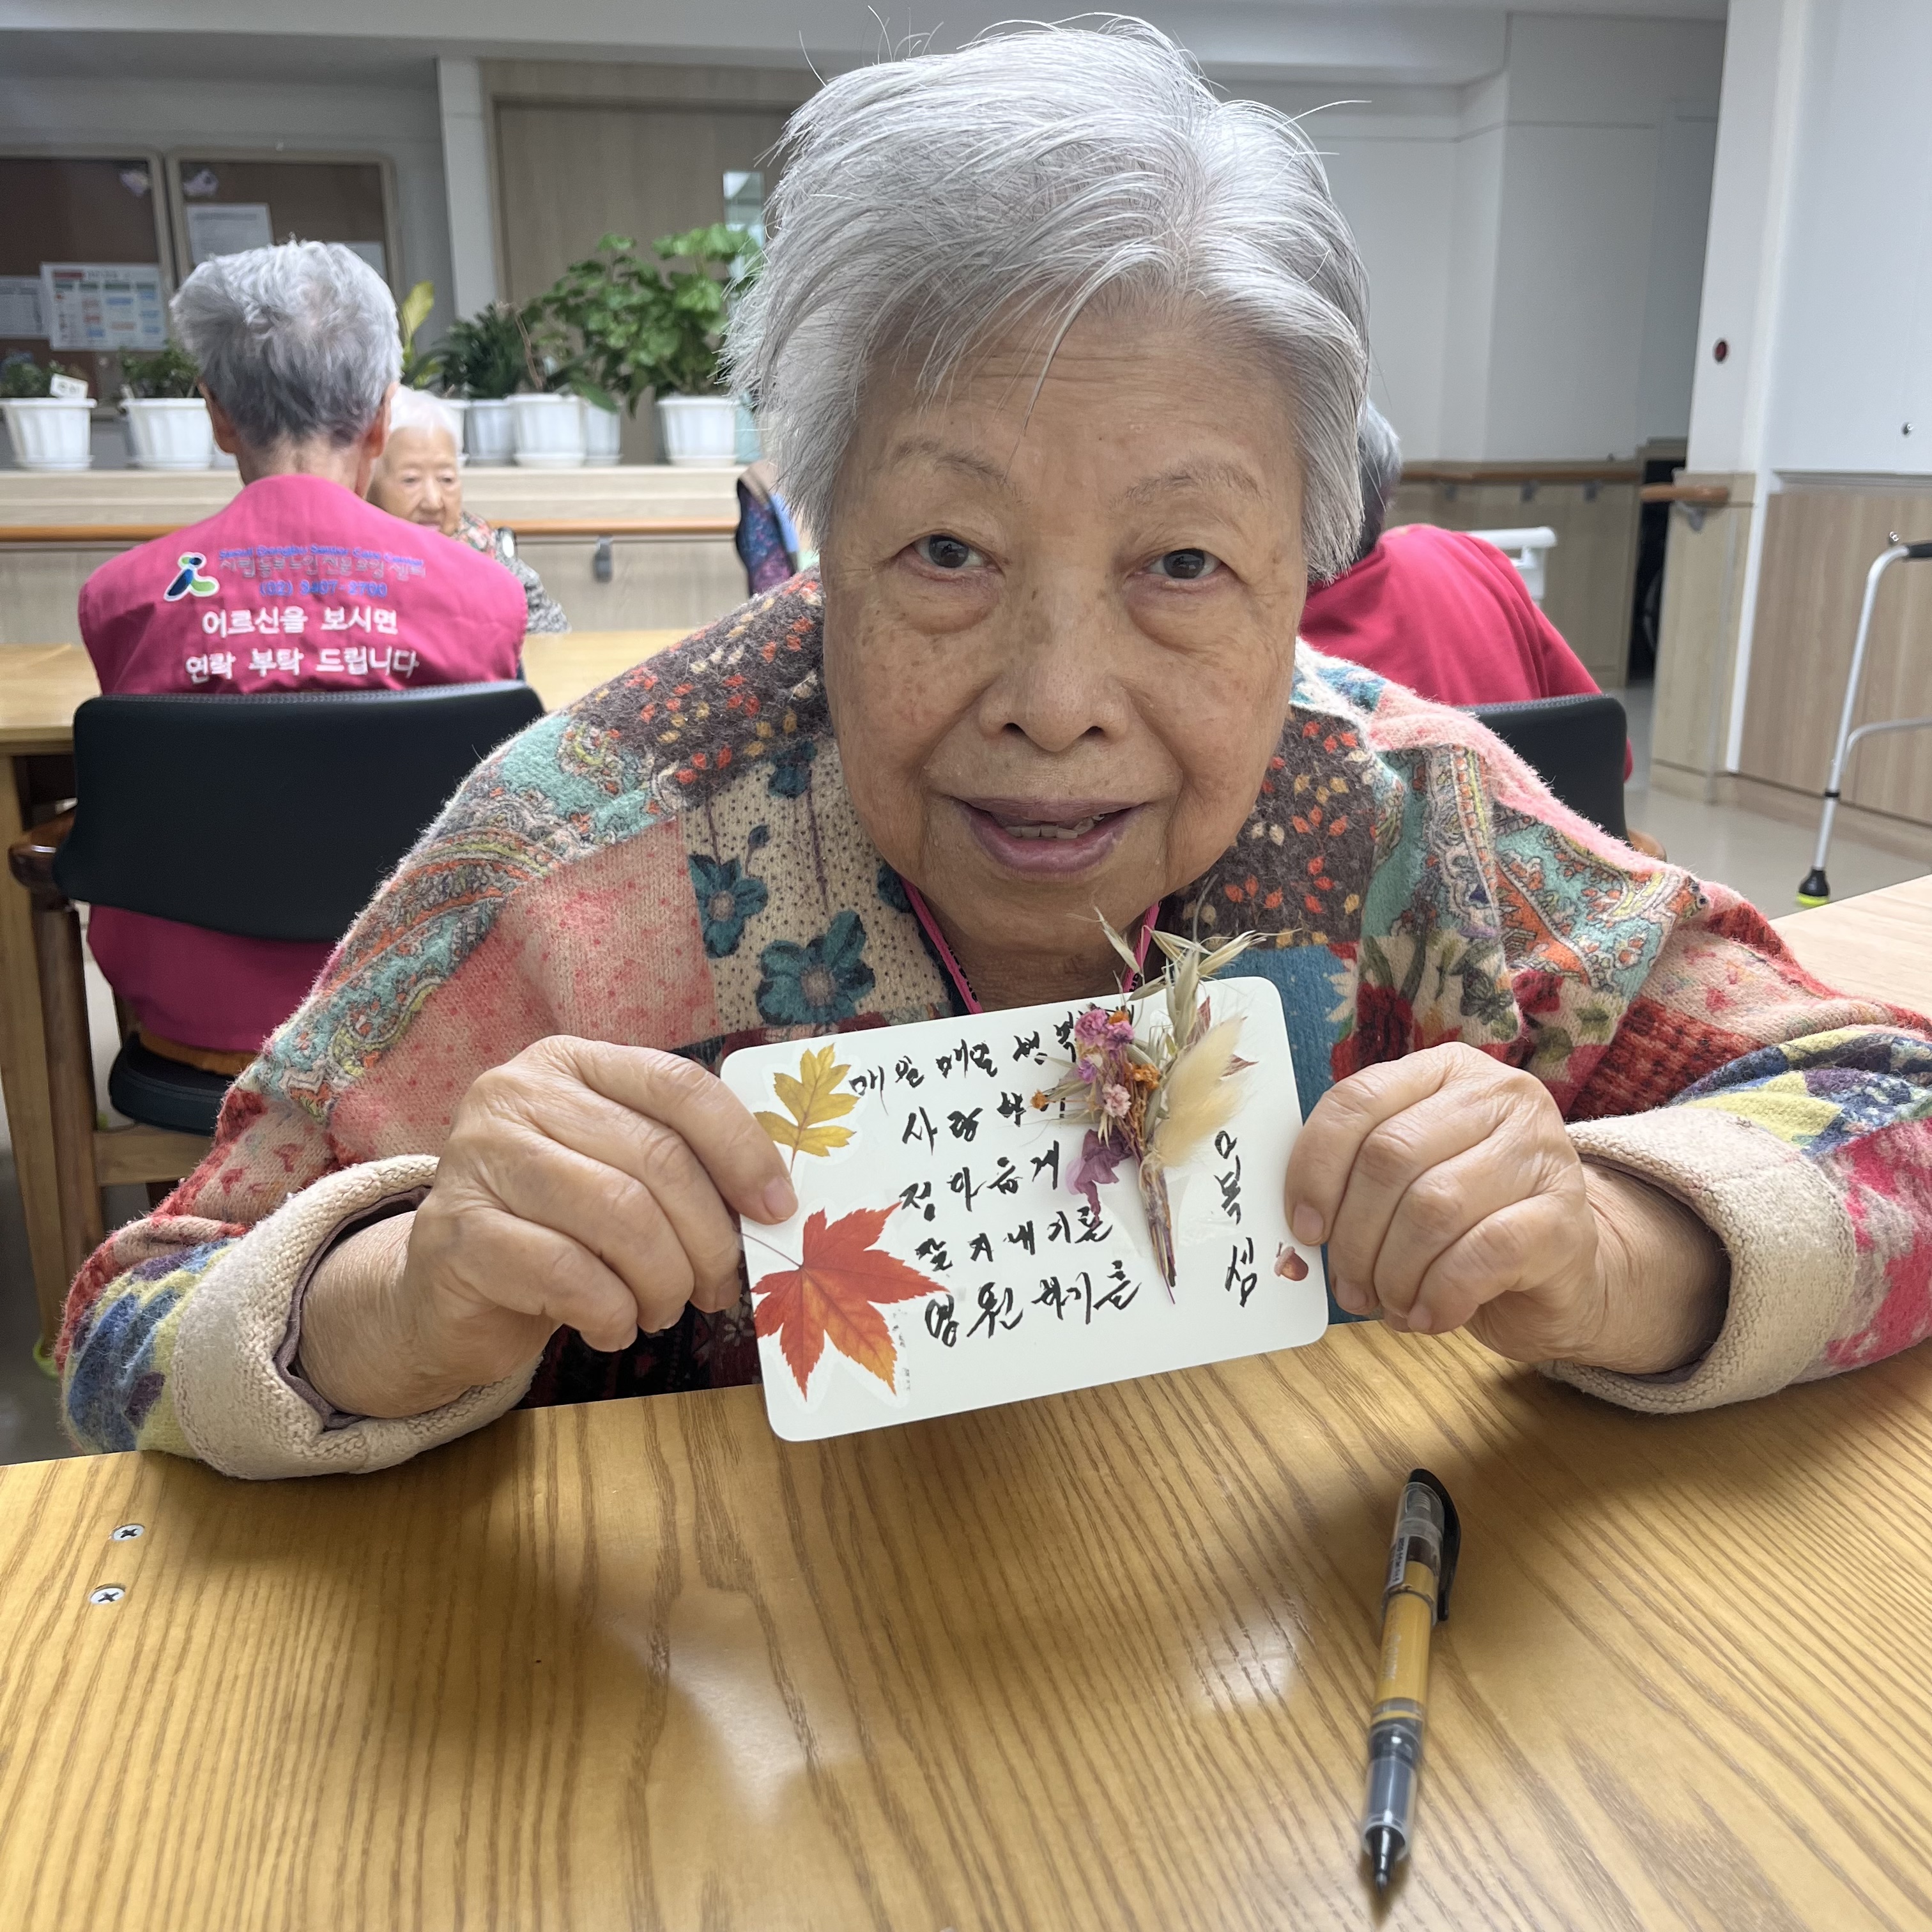 Seoul Dongbu Senior Care Center
시립동부노인전문요양센터
어르신을 보시면
연락 부탁 드립니다
매일 매일 행복
사랑하
정다웁게
잘 지내기를
영원하기를
심복모